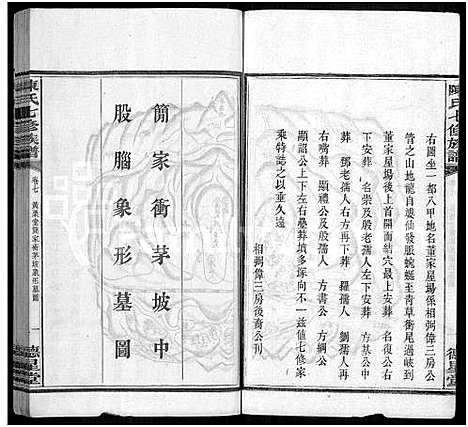 陳氏七修族譜
德星堂
右圖坐一都八甲地名董家屋場係相弼偉三房公
管之山地龍自婆仙發脈蜿蜒至青草衝尾過峽到
董家屋場後上首開面結穴最上下葬 名復公右
下安葬 名炅及殷老孺人左上安葬 方基公中
葬 鄧老孺人右方再下葬 羅孺人 劉孺人再
右嘴葬 顯禮公及殷孺人 方書公 方綱公
顯韶公上下左右壘葬墳多塚向不一茲值七修家
乘特誌之以垂久遠
相弼偉三房後裔公刊
簡家衝茅坡中
股腦象形墓圖
陳氏七修族譜
卷七
黃栗堂簡家衝茅坡象形墓圖
一
德星堂